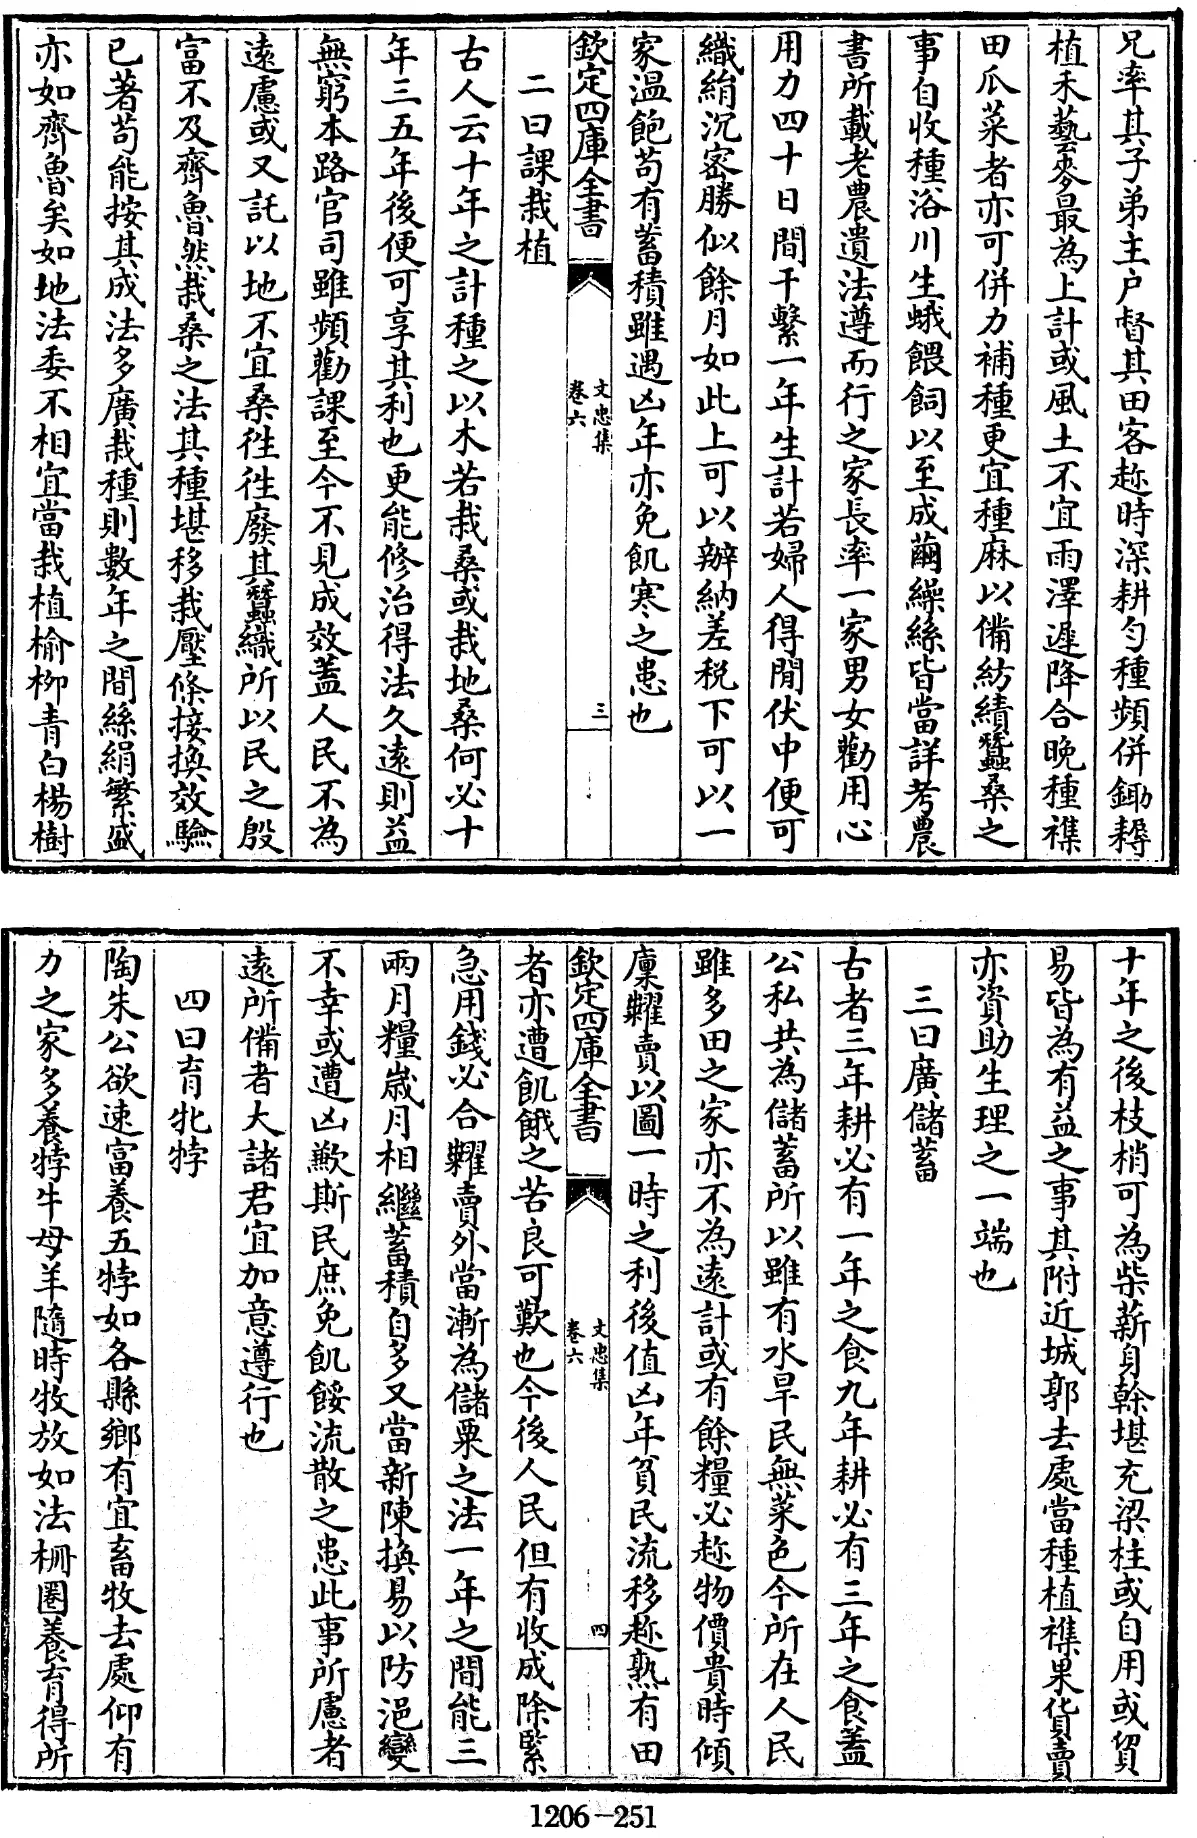 兄率其子弟主户督其田客趂時深耕勻種頻併鋤耨
植禾藝麥最為上計或風土不宜雨澤遲降合晚種襍
田瓜菜者亦可併力補種更宜種麻以備紡績蠶桑之
事自收種浴川生蛾餵飼以至成繭繰絲皆當詳考農
書所載老農遺法遵而行之家長率一家男女勸用心
用力四十日間干繫一年生計若婦人得閒伏中便可
織絹沉密勝似餘月如此上可以辦納差税下可以一
家溫飽茍有蓄積雖遇凶年亦免飢寒之患也
欽定四庫全書
文忠集
卷六
三
二曰課栽植
古人云十年之計種之以木若栽桑或栽地桑何必十
年三五年後便可享其利也更能修治得法久遠則益
無窮本路官司雖頻勸課至今不見成效蓋人民不為
遠慮或又託以地不宜桑徃徃廢其蠶織所以民之殷
富不及齊魯然栽桑之法其種堪移栽壓條接換效驗
已著茍能按其成法多廣栽種則數年之間絲絹繁盛
亦如齊魯矣如地法委不相宜當栽植榆栁青白楊樹
十年之後枝梢可為柴薪身幹堪充梁柱或自用或貿
易皆為有益之事其附近城郭去處當種植襍果貨賣
亦資助生理之一端也
三曰廣儲蓄
古者三年耕必有一年之食九年耕必有三年之食蓋
公私共為儲蓄所以雖有水旱民無菜色今所在人民
雖多田之家亦不為遠計或有餘糧必趂物價貴時傾
廩糶賣以圖一時之利後值凶年貧民流移趂熟有田
欽定四庫全書
文忠集
卷六
四
者亦遭飢餓之苦良可歎也今後人民但有收成除緊
急用錢必合糶賣外當漸為儲粟之法一年之間能三
兩月糧歲月相繼蓄積自多又當新陳換易以防浥變
不幸或遭凶歉斯民庶免飢餒流散之患此事所慮者
遠所備者大諸君宜加意遵行也
四曰育牝牸
陶朱公欲速富養五牸如各縣鄉有宜畜牧去處仰有
力之家多養牸牛母羊隨時牧放如法柵圈養育得所
1206-251